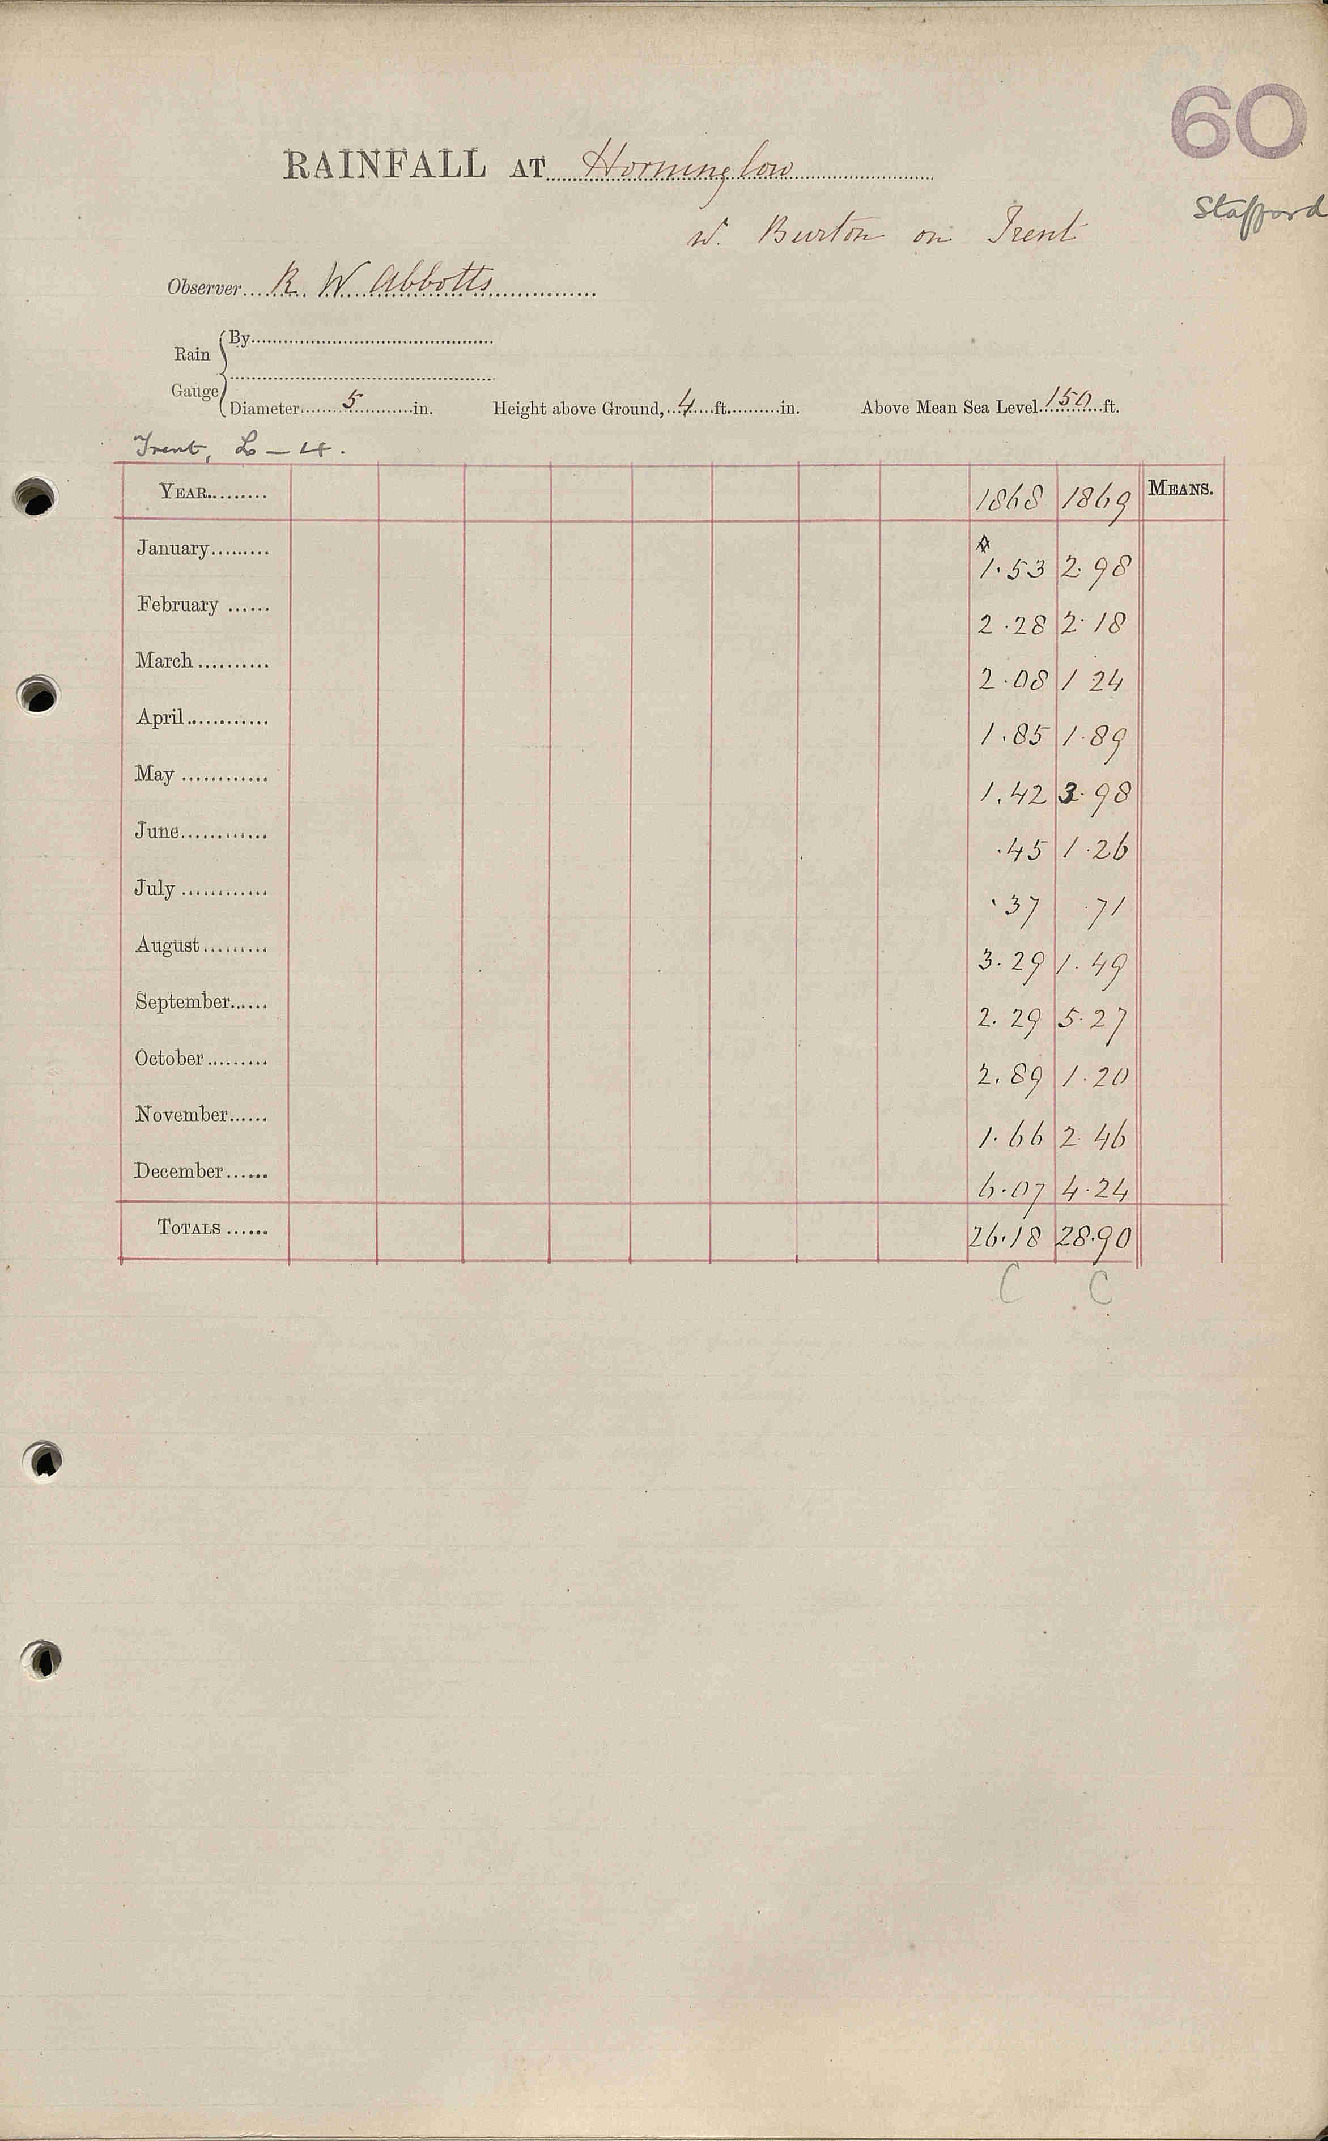 60
RAINFALL AT Horninglow
Stafford
W. Burton on Trent
Observer R. W Abbotts
Rain Gauge
By
Diameter 5 in. Height above Ground, 4 ft. in. Above Mean Sea Level 150 ft.
Trent, L — 4.
YEAR 1868 1869 MEANS.
January 1.53 2.98
February 2.28 2.18
March 2.08 1 24
April 1.85 1.89
May 1.42 3.98
June .45 1.26
July .37 .71
August 3.29 1.49
September 2.29 5.27
October 2.89 1.20
November 1.66 2 46
December 6.07 4.24
TOTALS 26.18 28.90
C C